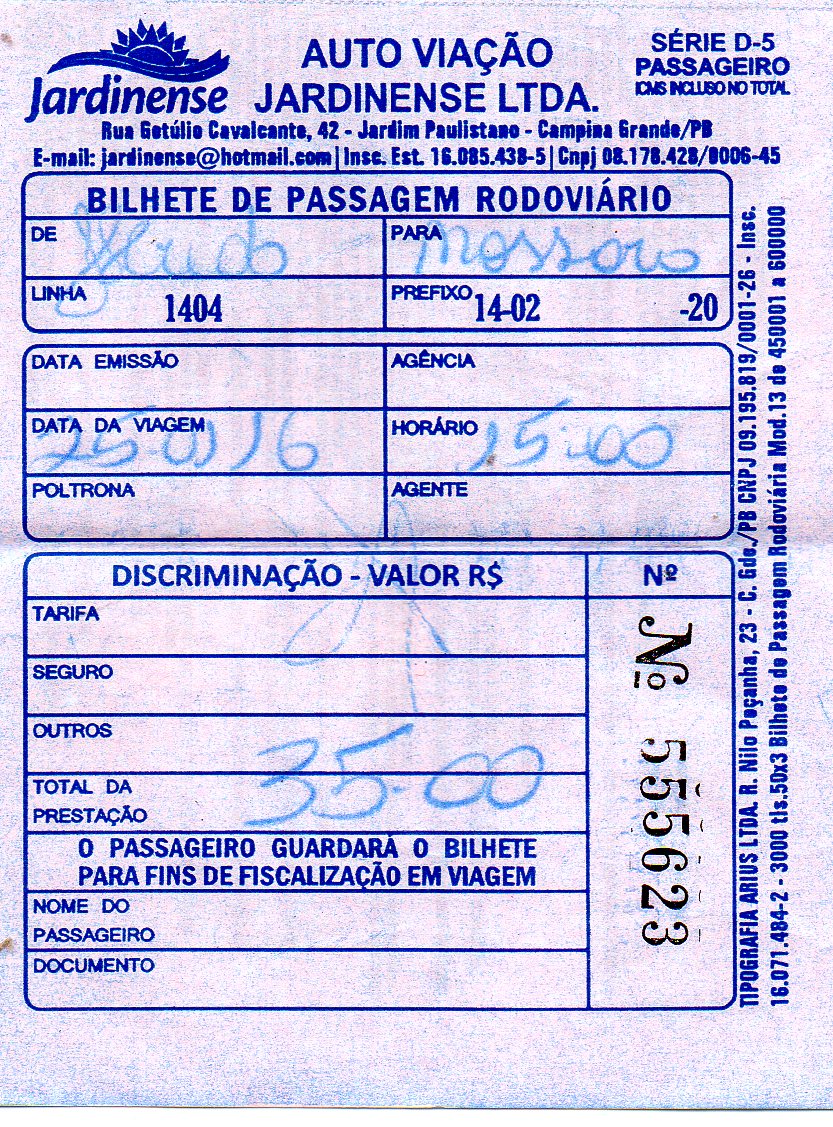 Jardinense
AUTO VIAÇÃO
JARDINENSE LTDA.
SÉRIE D-5
PASSAGEIRO
ICMS INCLUSO NO TOTAL
Rua Getúlio Cavalcante, 42 - Jardim Paulistano - Campina Grande/PB
E-mail: jardinense@hotmail.com | Insc. Est. 16.085.438-5 | Cnpj 08.178.428/0006-45
BILHETE DE PASSAGEM RODOVIÁRIO
DE
PARA Mossoro
LINHA 1404
PREFIXO 14-02 -20
DATA EMISSÃO
AGÊNCIA
DATA DA VIAGEM 25-01 16
HORÁRIO 15:00
POLTRONA
AGENTE
DISCRIMINAÇÃO - VALOR R$
Nº
TARIFA
SEGURO
OUTROS
TOTAL DA
PRESTAÇÃO 35-00
O PASSAGEIRO GUARDARÁ O BILHETE
PARA FINS DE FISCALIZAÇÃO EM VIAGEM
NOME DO
PASSAGEIRO
DOCUMENTO
Nº 555623
TIPOGRAFIA ARIUS LTDA. R. Nilo Peçanha, 23 - C. Gde./PB CNPJ 09.195.819/0001-26 - Insc.
16.071.484-2 - 3000 tls.50x3 Bilhete de Passagem Rodoviária Mod.13 de 450001 a 600000